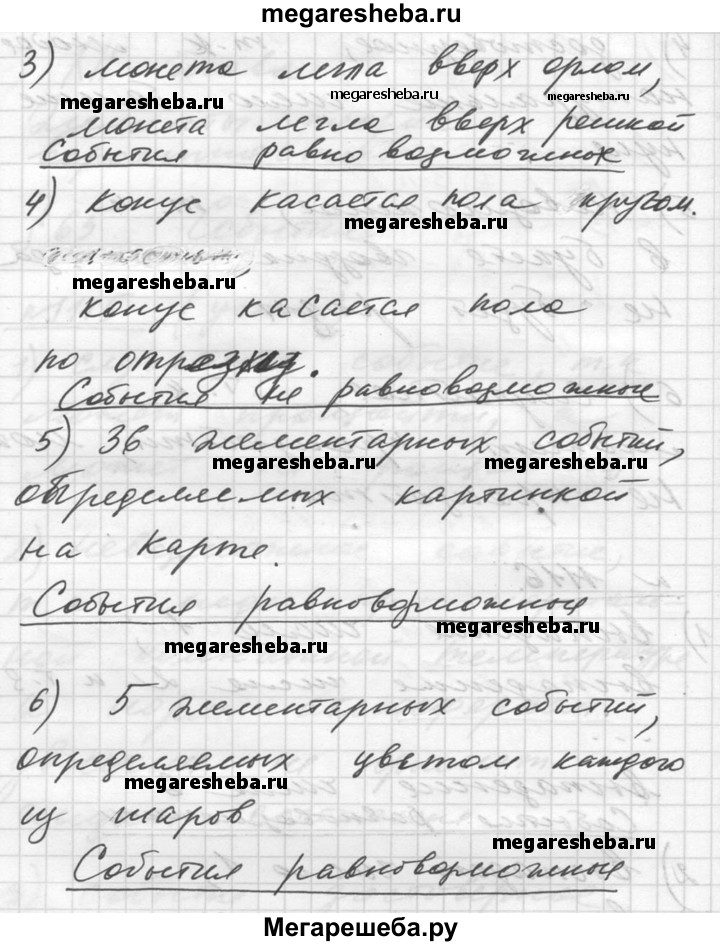 megaresheba.ru
3) монета легла вверх орлом,
megaresheba.ru megaresheba.ru megaresheba.ru
монета легла вверх решкой
События равно возможных
4) конус касается пола кругом.
megaresheba.ru
megaresheba.ru
конус касается пола
по отрезку.
События не равновозможные
5) 36 элементарных событий,
megaresheba.ru megaresheba.ru
определяемых картинкой
на карте.
События равновозможные
megaresheba.ru megaresheba.ru
6) 5 элементарных событий,
определяемых цветом каждого
megaresheba.ru
из шаров
megaresheba.ru
События равновозможные
Мегарешеба.ру